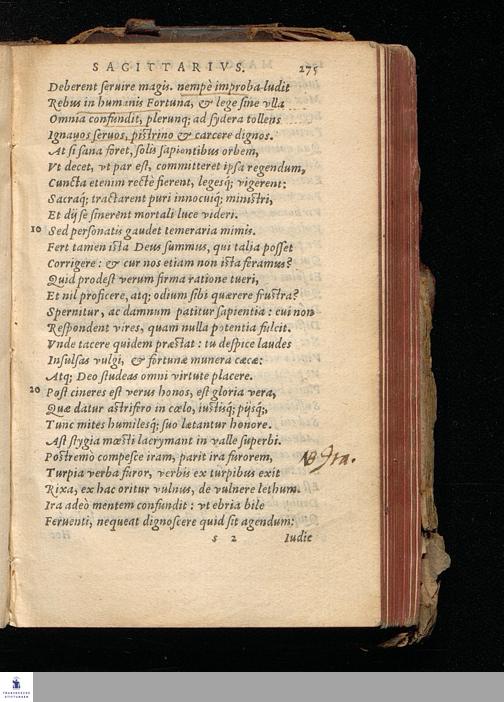 SAGITTARIVS. 275
Deberent seruire magis. nempè improba ludit
Rebus in humanis Fortuna, & lege sine vlla
Omnia confundit, plerunq; ad sydera tollens
Ignauos seruos, pistrino & carcere dignos.
At si sana foret, solis sapientibus orbem,
Vt decet, vt par est, committeret ipsa regendum,
Cuncta etenim rectè fierent, legesq́; vigerent:
Sacraq́; tractarent puri innocuiq́; ministri,
Et dij se sinerent mortali luce videri.
10 Sed personatis gaudet temeraria mimis.
Fert tamen ista Deus summus, qui talia posset
Corrigere: & cur nos etiam non ista feramus?
Quid prodest verum firma ratione tueri,
Et nil proficere, atq; odium sibi quærere frustra?
Spernitur, ac damnum patitur sapientia: cui non
Respondent vires, quam nulla potentia fulcit.
Vnde tacere quidem præstat: tu despice laudes
Insulsas vulgi, & fortunæ munera cæcæ:
Atq; Deo studeas omni virtute placere.
20 Post cineres est verus honos, est gloria vera,
Quæ datur astrifero in cœlo, iustisq́; pijsq́;,
Tunc mites humilesq́; suo lætantur honore.
Ast stygia mœsti lacrymant in valle superbi.
Postremò compesce iram, parit ira furorem,
Ira.
Turpia verba furor, verbis ex turpibus exit
Rixa, ex hac oritur vulnus, de vulnere lethum.
Ira adeò mentem confundit: vt ebria bile
Feruenti, nequeat dignoscere quid sit agendum:
s 2 Iudic